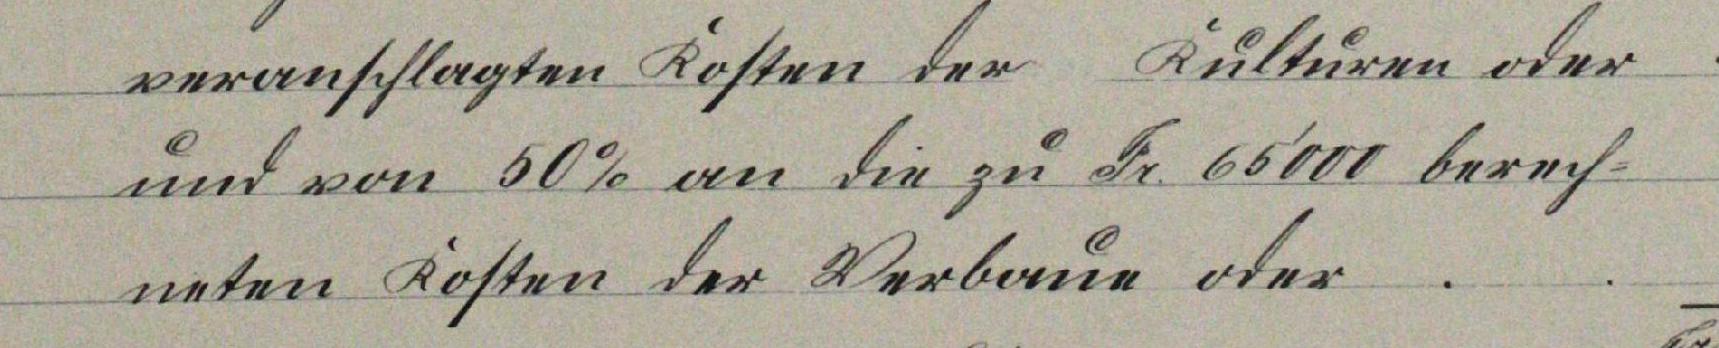 veranschlagten Kosten der Kulturen oder
und von 50% an die zu Fr. 65'000 berech-
neten Kosten der Verbaue oder . .